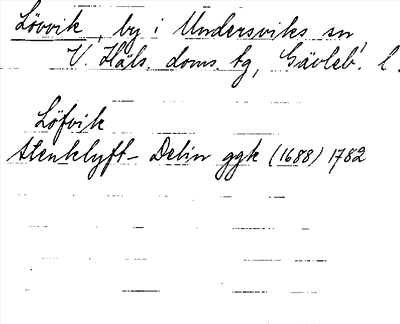 Lövvik, by i Undersviks sn,
V. Häls. doms. tg, Gävleb. l.
Löfvik
Stenklyft- Delin ggk (1688) 1782